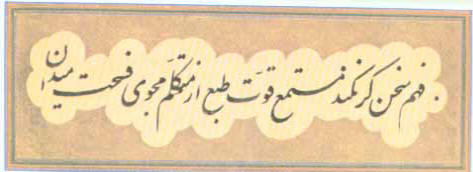 فهم سخن گر نکند مستمع قوّت طبع از متکلّم مجوی فسحت میدان